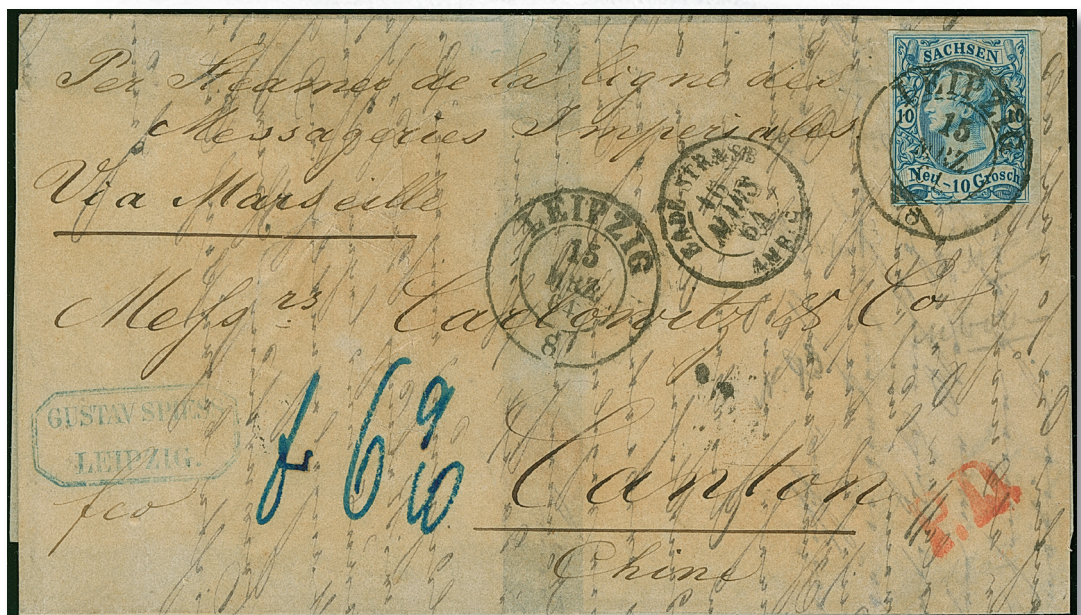 Per Steamer de la ligne des
Messageries Imperiales
Via Marseille
SACHSEN
10 10
Neu-10 Grosch
LEIPZIG
15
MRZ
BADE-STRASB
MARS
64
AMB. G
LEIPZIG
15
MRZ
64
8
Messrs Carlowitz & Co
GUSTAV SPIESS
LEIPZIG.
fco
f 6 9/10
Canton
Chine
P.D.